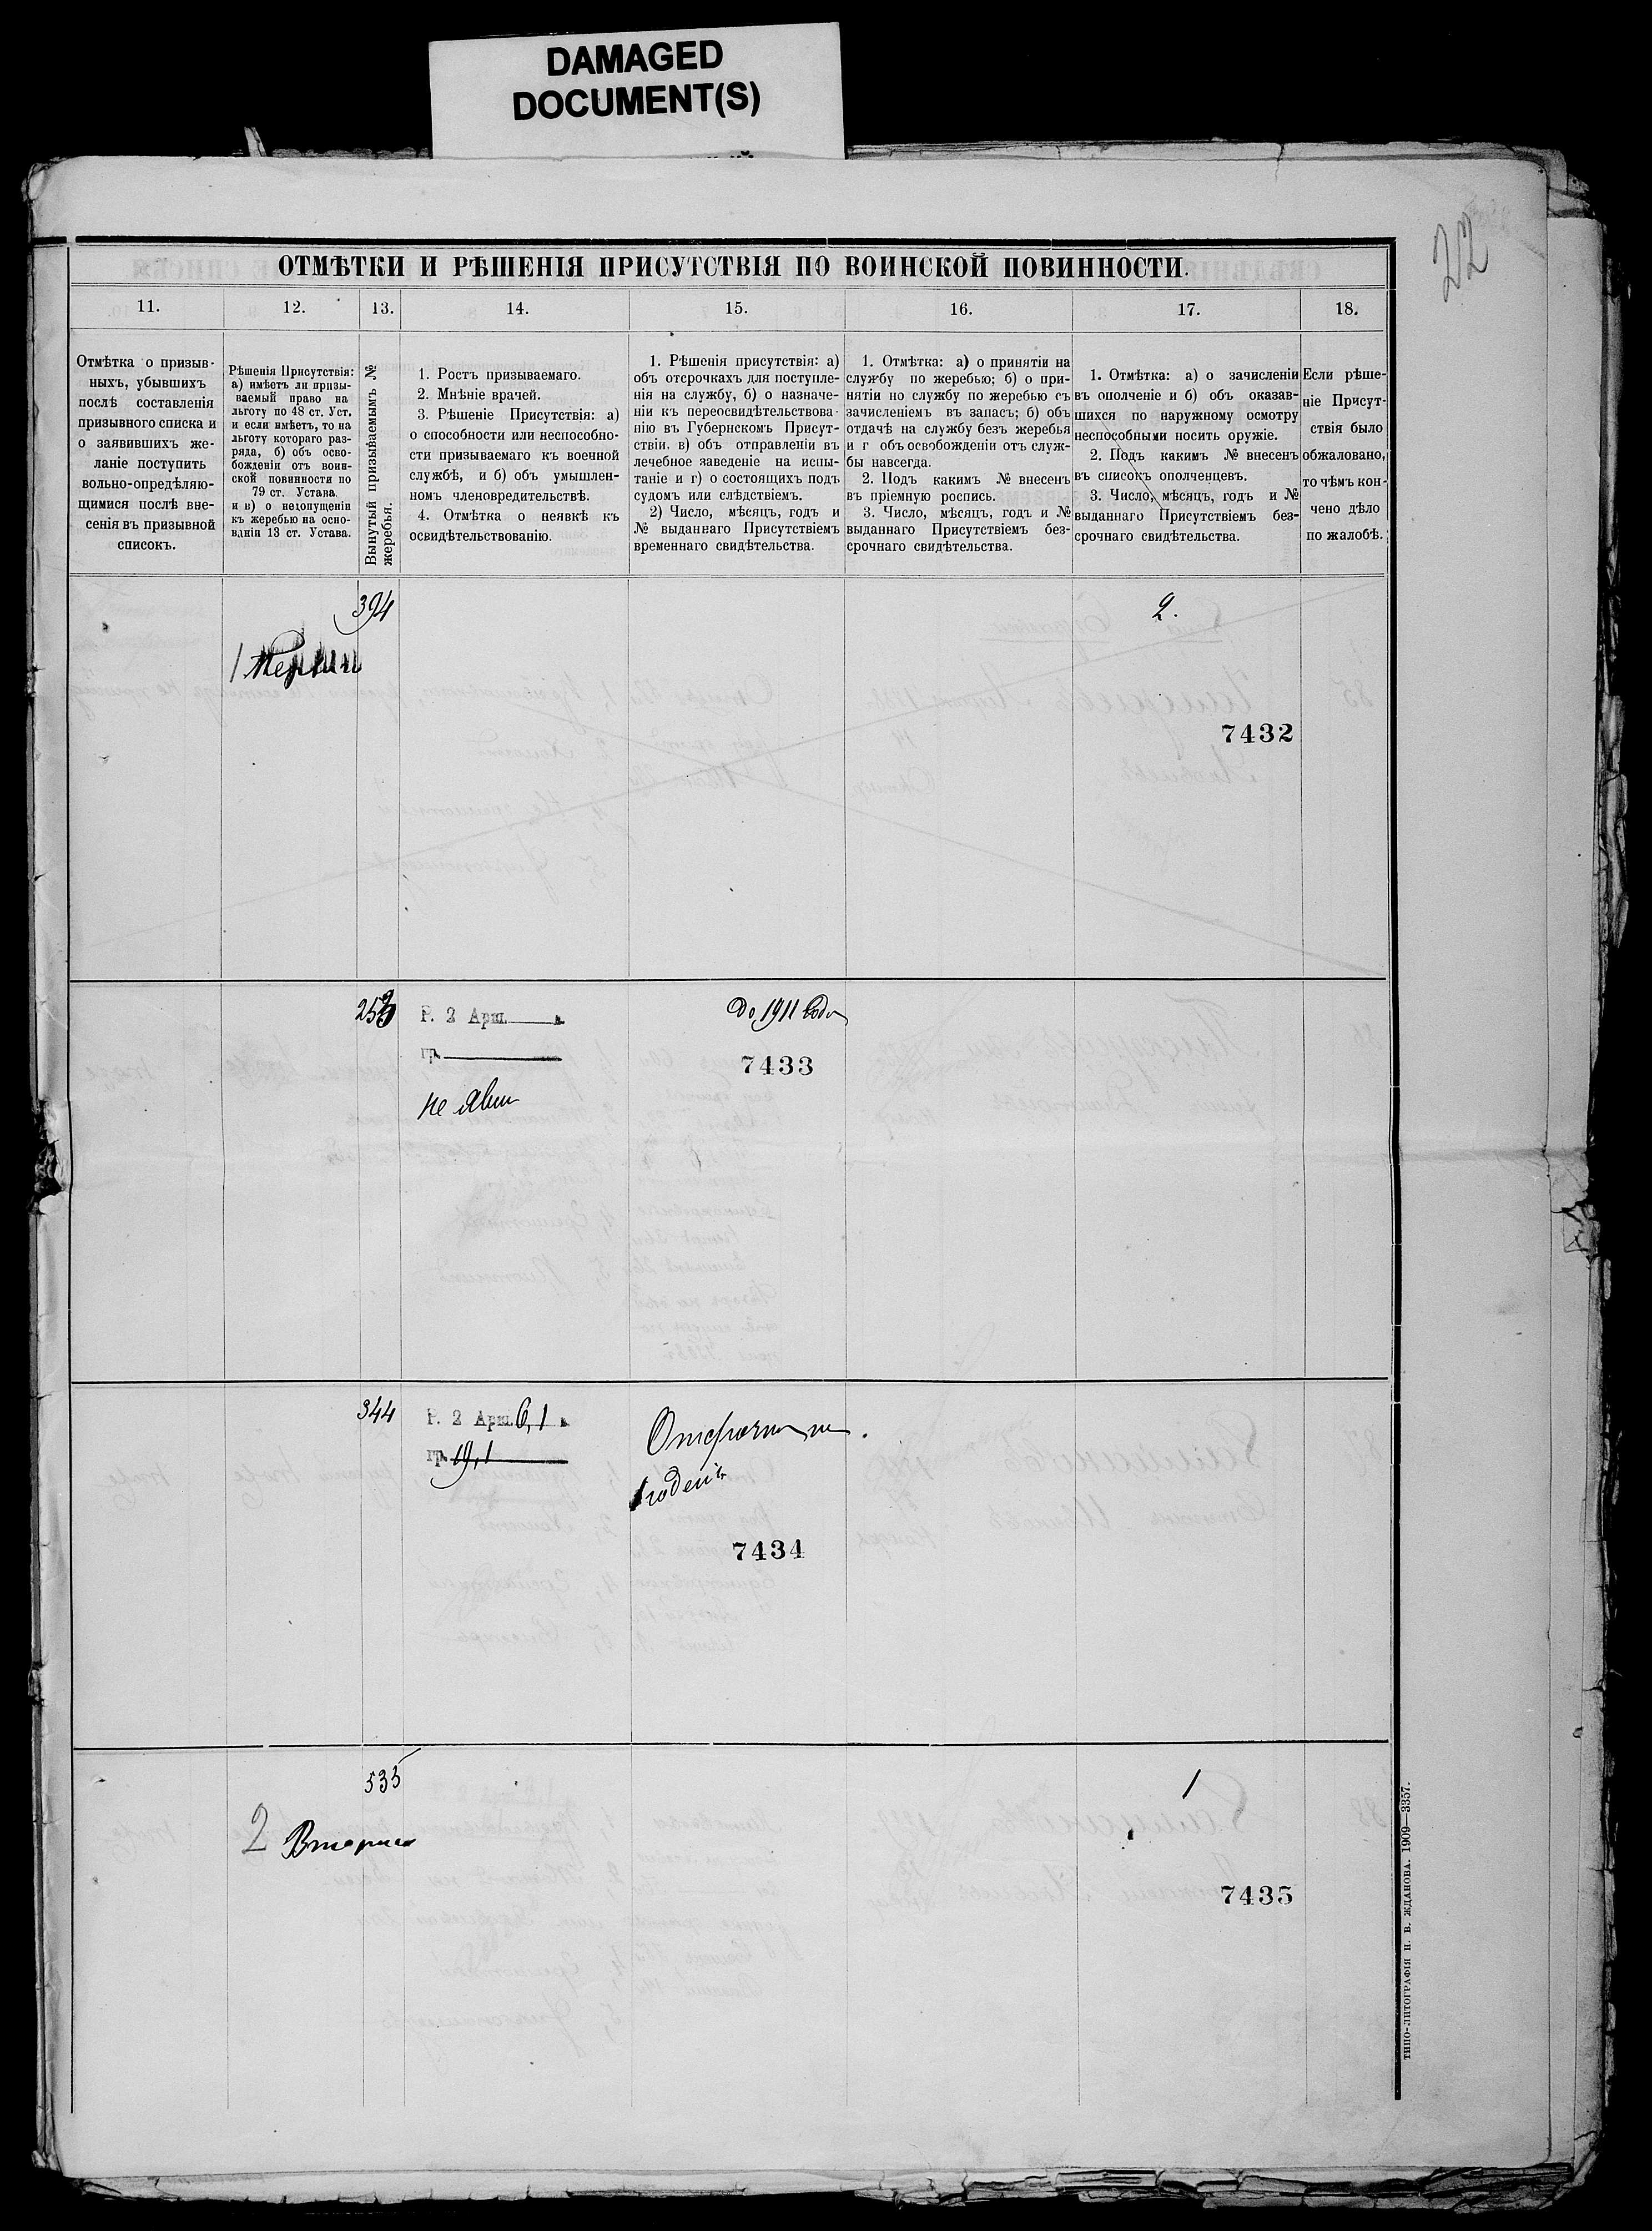 DAMAGED
DOCUMENT(S)
22
ОТМѢТКИ И РѢШЕНІЯ ПРИСУТСТВІЯ ПО ВОИНСКОЙ ПОВИННОСТИ.
11.
12.
13.
14.
15.
16.
17.
18.
Отмѣтка о призыв-
ныхъ, убывшихъ
послѣ составленія
призывного списка и
о заявившихъ же-
ланіе поступить
вольно-опредѣляю-
щимися послѣ вне-
сенія въ призывной
списокъ.
Рѣшенія Присутствія:
а) имѣетъ ли призы-
ваемый право на
льготу по 48 ст. Уст.
и если имѣетъ, то на
льготу котораго раз-
ряда, б) объ осво-
божденіи отъ воин-
ской повинности по
79 ст. Устава
и в) о недопущеніи
къ жеребью на осно-
ваніи 13 ст. Устава.
Вынутый призываемымъ №
жеребья.
1. Ростъ призываемаго.
2. Мнѣніе врачей.
3. Рѣшеніе Присутствія: а)
о способности или неспособно-
сти призываемаго къ военной
службѣ, и б) объ умышлен-
номъ членовредительствѣ.
4. Отмѣтка о неявкѣ къ
освидѣтельствованію.
1. Рѣшенія присутствія: а)
объ отсрочкахъ для поступле-
нія на службу, б) о назначе-
ніи къ переосвидѣтельствова-
нію въ Губернскомъ Присут-
ствіи. в) объ отправленіи въ
лечебное заведеніе на испы-
таніе и г) о состоящихъ подъ
судомъ или слѣдствіемъ.
2) Число, мѣсяцъ, годъ и
№ выданнаго Присутствіемъ
временнаго свидѣтельства.
1. Отмѣтка: а) о принятіи на
службу по жеребью; б) о при-
нятіи но службу по жеребью съ
зачисленіемъ въ запасъ; б) объ
отдачѣ на службу безъ жеребья
и г объ освобожденіи отъ служ-
бы навсегда.
2. Подъ какимъ № внесенъ
въ пріемную роспись.
3. Число, мѣсяцъ, годъ и №
выданнаго Присутствіемъ без-
срочнаго свидѣтельства.
1. Отмѣтка: а) о зачисленіи
въ ополченіе и б) объ оказав-
шихся по наружному осмотру
неспособными носить оружіе.
2. Подъ какимъ № внесенъ
въ списокъ ополченцевъ.
3. Число, мѣсяцъ, годъ и №
выданнаго Присутствіемъ без-
срочнаго свидѣтельства.
Если рѣше-
ніе Присут-
ствія было
обжаловано,
то чѣмъ кон-
чено дѣло
по жалобѣ.
394
2.
1
7432
253
Р. 2 Арш. в.
До 1911 года
гр.
7433
не явил
344
Р. 2 Арш. 6,1 в.
гр. 19,1
7434
535
1
2
7435
ТИПО-ЛИТОГРАФІЯ Н. В. ЖДАНОВА. 1909—3357.